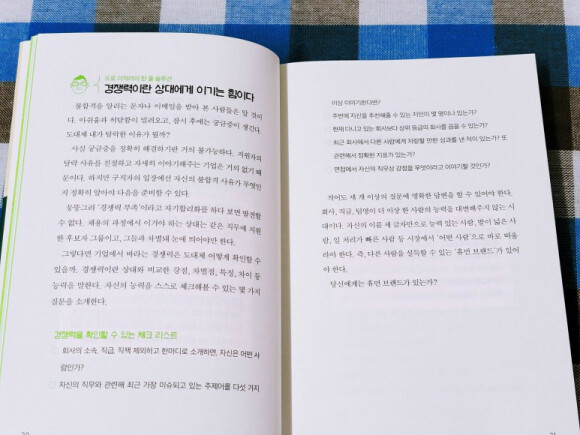 프로 이직러의 한 줄 솔루션
경쟁력이란 상대에게 이기는 힘이다
불합격을 알리는 문자나 이메일을 받아 본 사람들은 알 것이
다. 아쉬움과 허탈함이 밀려오고, 잠시 후에는 궁금증이 생긴다.
도대체 내가 탈락한 이유가 뭘까?
사실 궁금증을 정확히 해결하기란 거의 불가능하다. 지원자의
탈락 사유를 친절하고 자세히 이야기해주는 기업은 거의 없기 때
문이다. 하지만 구직자의 입장에선 자신의 불합격 사유가 무엇인
지 정확히 알아야 다음을 준비할 수 있다.
두루뭉술 '경쟁력 부족'이라고 자기합리화를 하다 보면 발전할
수 없다. 채용의 과정에서 이겨야 하는 상대는 같은 직무에 지원
한 후보자 그룹이고, 그들과 차별돼 눈에 띄어야만 한다.
그렇다면 기업에서 바라는 경쟁력은 도대체 어떻게 확인할 수
있을까. 경쟁력이란 상대와 비교한 강점, 차별점, 특징, 차이 등
능력을 말한다. 자신의 능력을 스스로 체크해볼 수 있는 몇 가지
질문을 소개한다.
경쟁력을 확인할 수 있는 체크 리스트
회사의 소속, 직급, 직책 제외하고 한마디로 소개하면, 자신은 어떤 사
람인가?
자신의 직무와 관련해 최근 가장 이슈되고 있는 주제어를 다섯 가지
이상 이야기한다면?
주변에 자신을 추천해줄 수 있는 지인이 몇 명이나 있는가?
현재 다니고 있는 회사보다 상위 등급의 회사를 꼽을 수 있는가?
최근 회사에서 다른 사람에게 자랑할 만한 성과를 낸 적이 있는가? 또
관련해서 정확한 지표가 있는가?
면접에서 자신의 직무상 강점을 무엇이라고 이야기할 것인가?
적어도 세 개 이상의 질문에 명확한 답변을 할 수 있어야 한다.
회사, 직급, 팀명이 더 이상 한 사람의 능력을 대변해주지 않는 시
대이다. 자신의 이름 세 글자만으로 능력 있는 사람, 발이 넓은 사
람, 일 처리가 빠른 사람 등 시장에서 '어떤 사람'으로 바로 떠올
라야 한다. 즉, 다른 사람을 설득할 수 있는 '휴먼 브랜드'가 있어
야 한다.
당신에게는 휴먼 브랜드가 있는가?